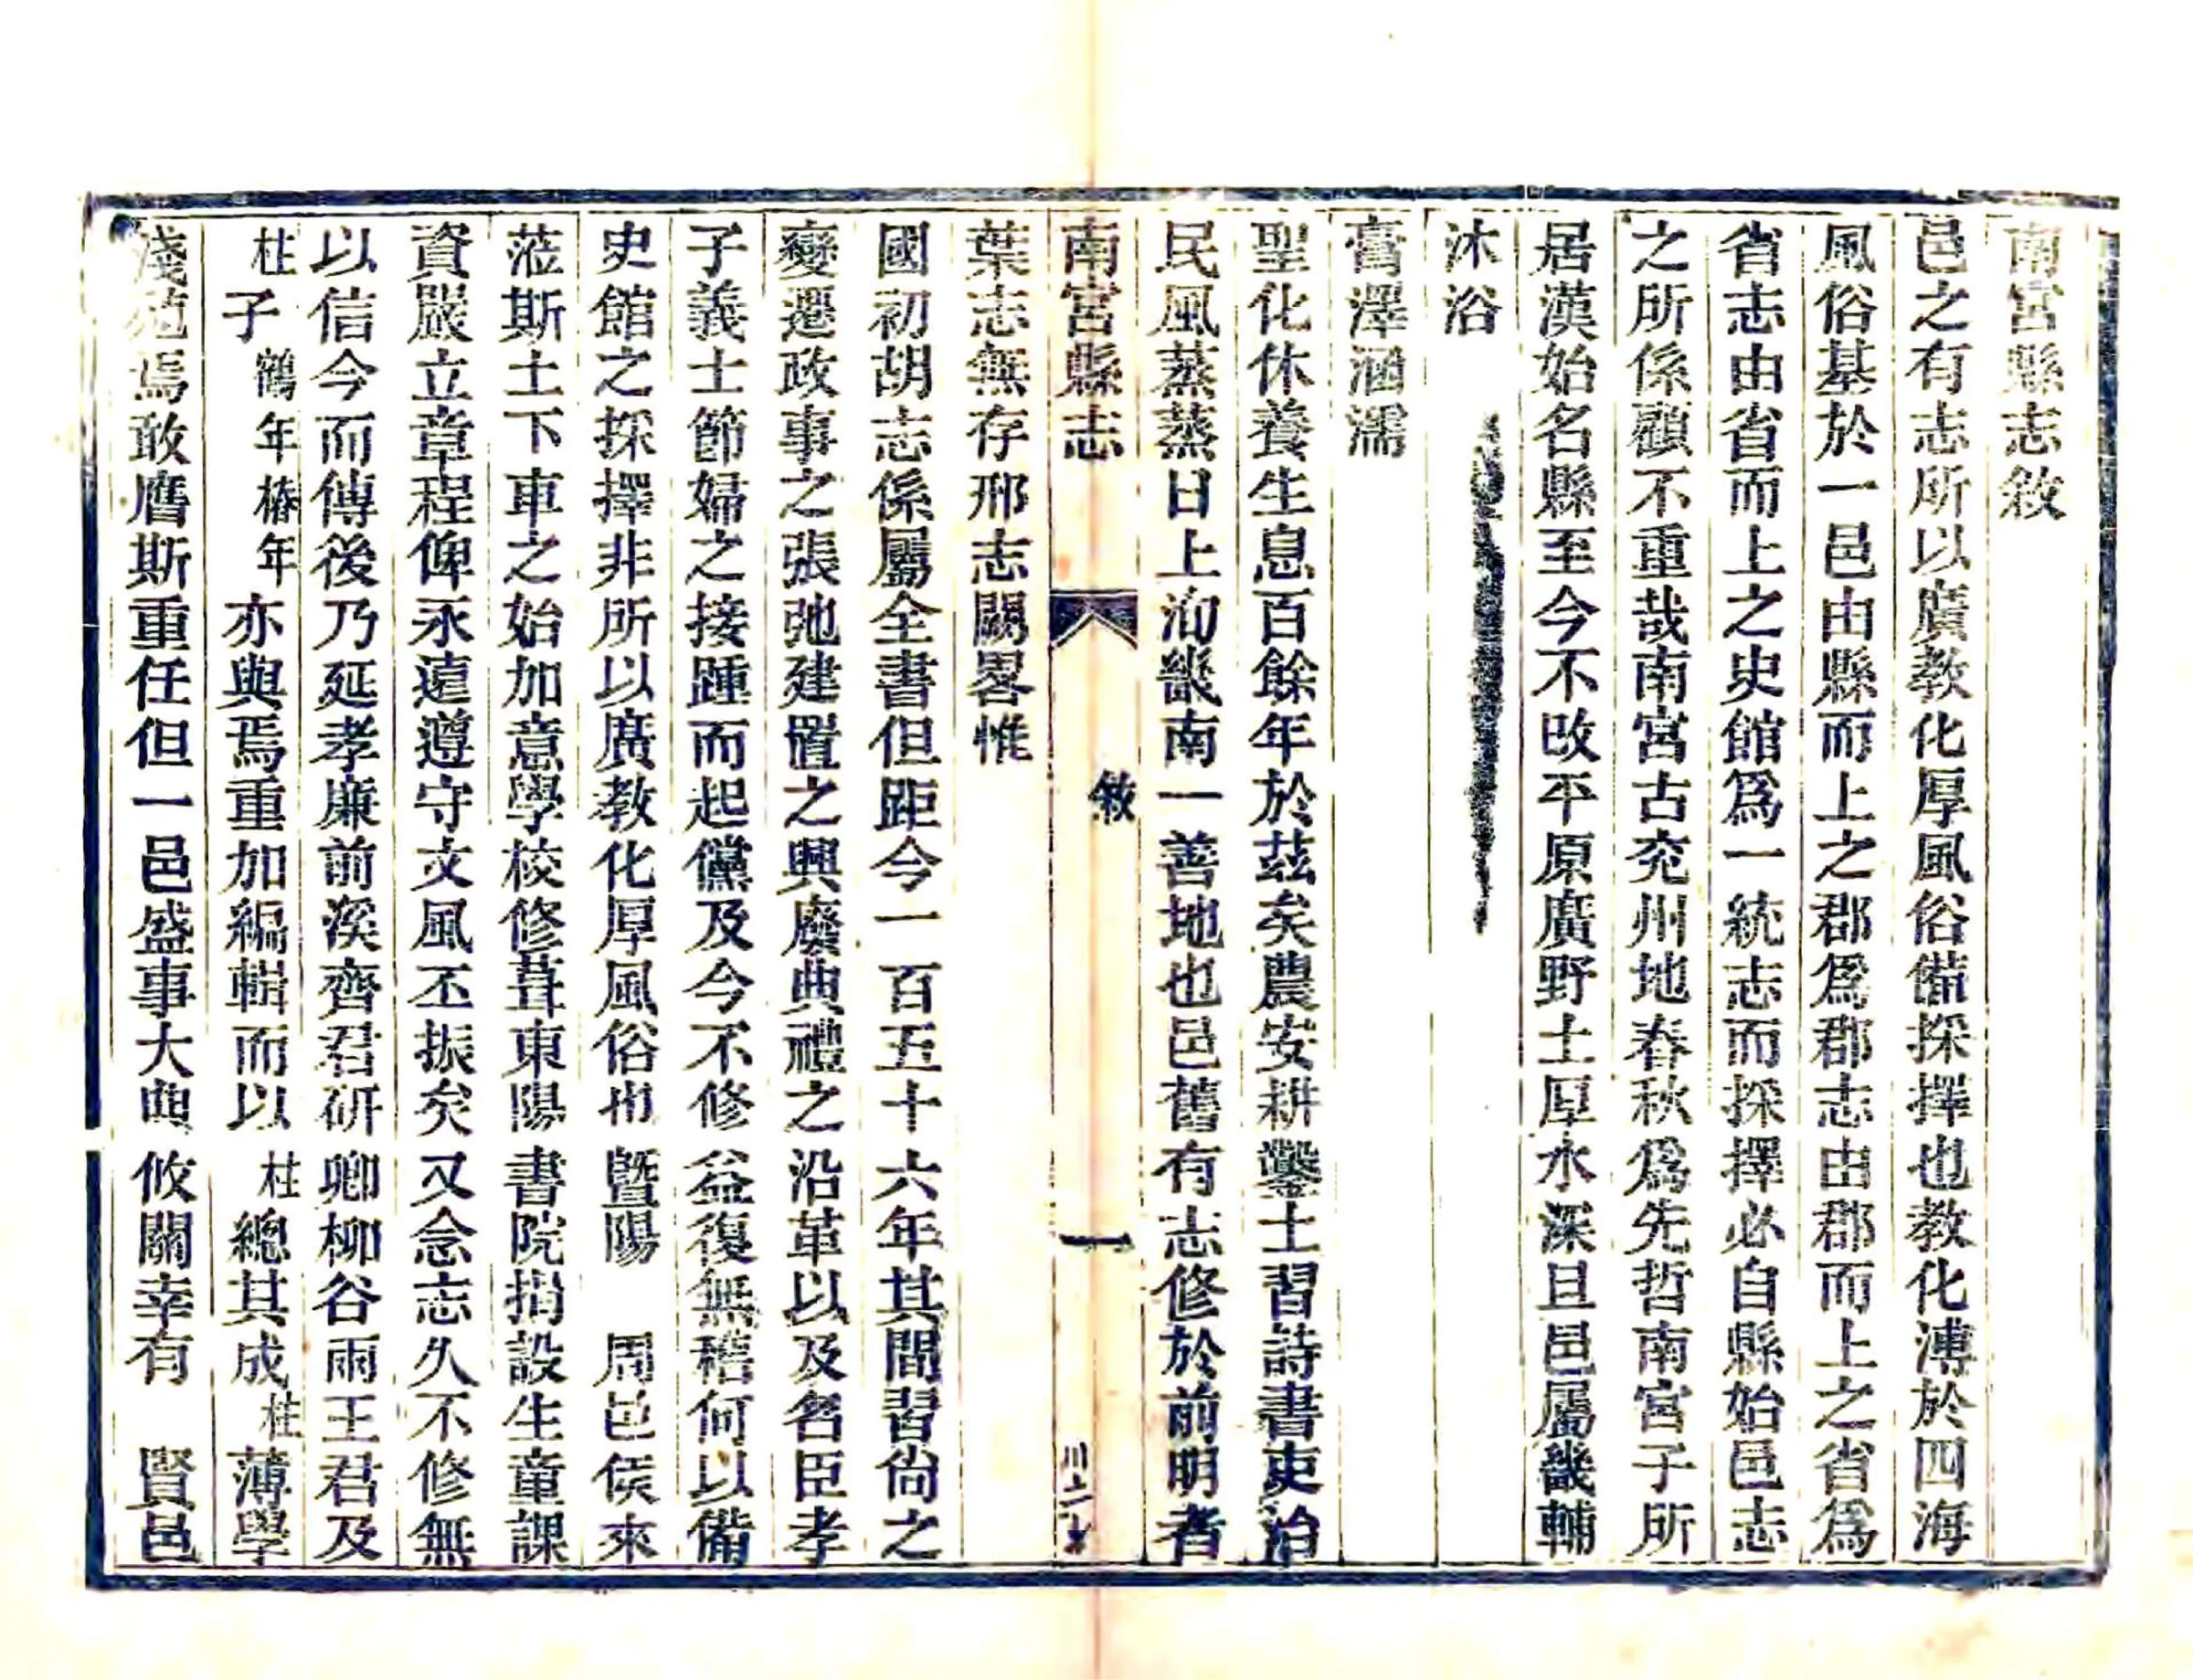 南宮縣志敘
邑之有志所以廣教化厚風俗備採擇也教化溥於四海
風俗基於一邑由縣而上之郡爲郡志由郡而上之省爲
省志由省而上之史館爲一統志而採擇必自縣始邑志
之所係顧不重哉南宮古兖州地春秋爲先哲南宮子所
居漢始名縣至今不改平原廣野土厚水深且邑屬畿輔
沐浴
膏澤涵濡
聖化休養生息百餘年於茲矣農安耕鑿士習詩書吏治
民風蒸蒸日上洵畿南一善地也邑舊有志修於前明者
南宮縣志 敘 一
葉志無存邢志闕畧惟
國初胡志係屬全書但距今一百五十六年其間習尙之
變遷政事之張弛建置之興廢典禮之沿革以及名臣孝
子義士節婦之接踵而起儻及今不修益復無稽何以備
史館之採擇非所以廣教化厚風俗也暨陽 周邑侯來
蒞斯土下車之始加意學校修葺東陽書院捐設生童課
資嚴立章程俾永遠遵守文風丕振矣又念志久不修無
以信今而傳後乃延孝廉前溪齊君研卿柳谷雨王君及
柱子鶴年椿年亦與焉重加編輯而以柱總其成柱薄學
淺焉敢膺斯重任但一邑盛事大典攸關幸有 賢邑